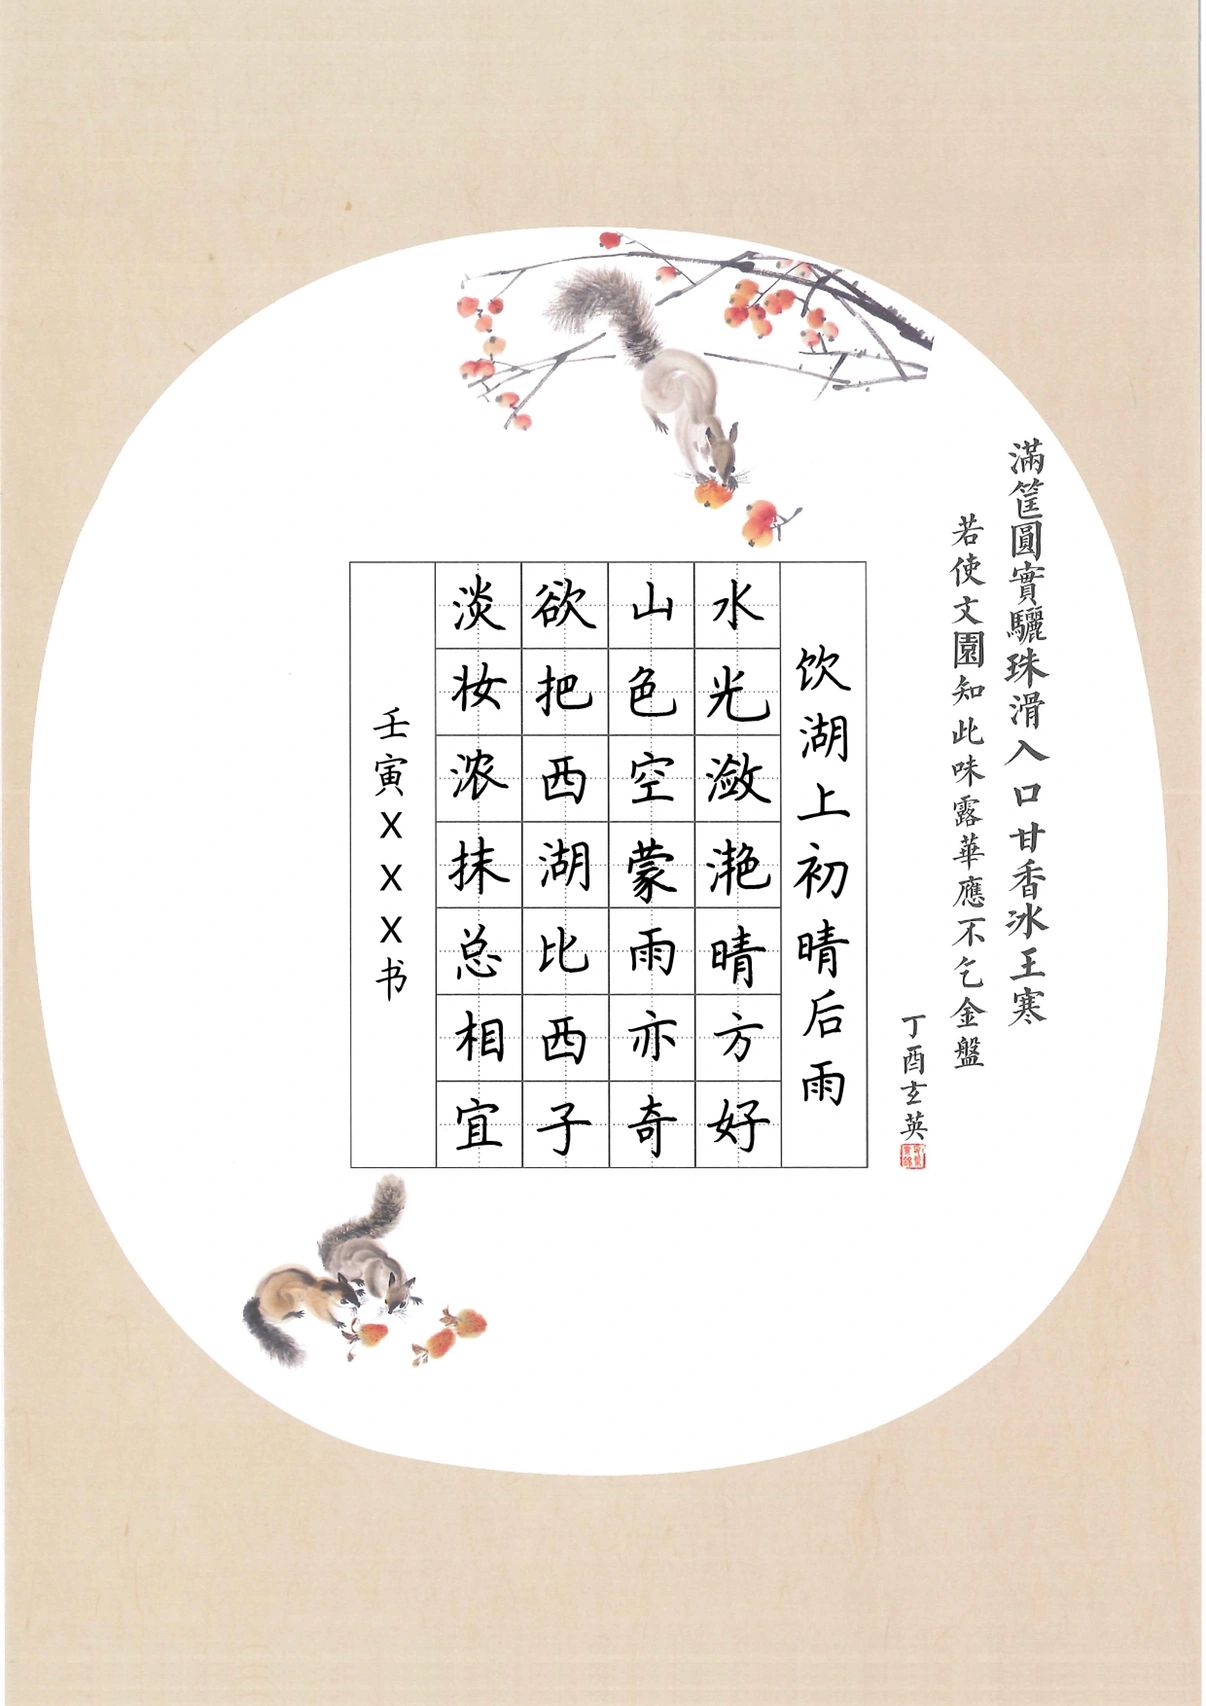 滿筐圓實驪珠滑入口甘香冰王寒
若使文園知此味露華應不乞金盤
丁酉玄英
饮湖上初晴后雨
水光潋滟晴方好
山色空蒙雨亦奇
欲把西湖比西子
淡妆浓抹总相宜
壬寅XXX书